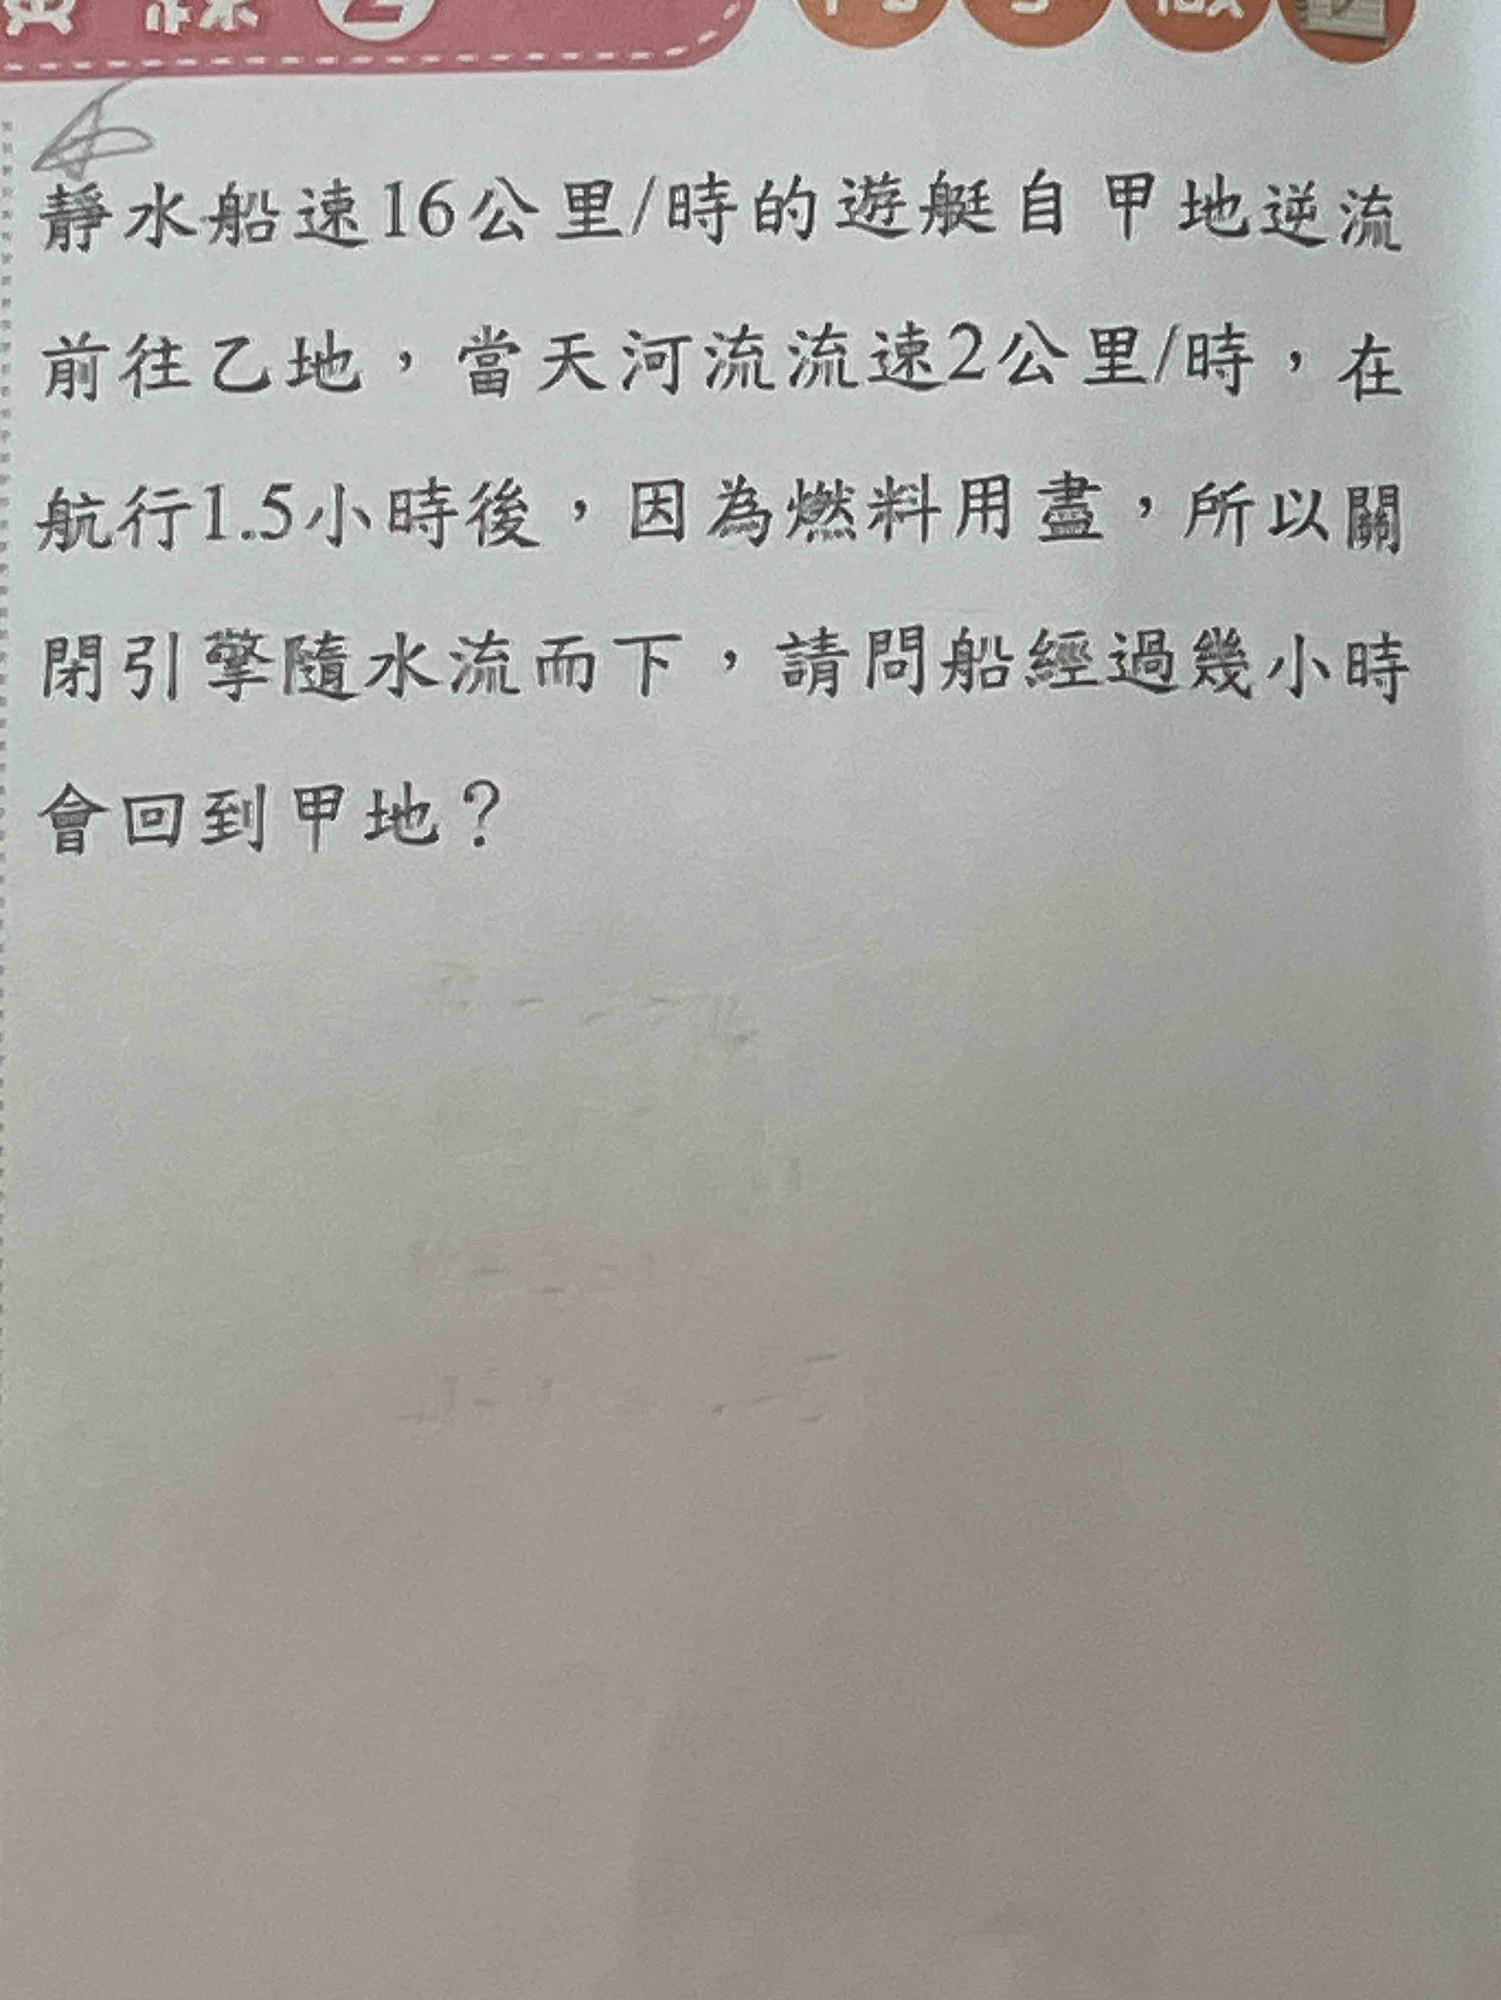 2
靜水船速16公里/時的遊艇自甲地逆流
前往乙地，當天河流流速2公里/時，在
航行1.5小時後，因為燃料用盡，所以關
閉引擎隨水流而下，請問船經過幾小時
會回到甲地？